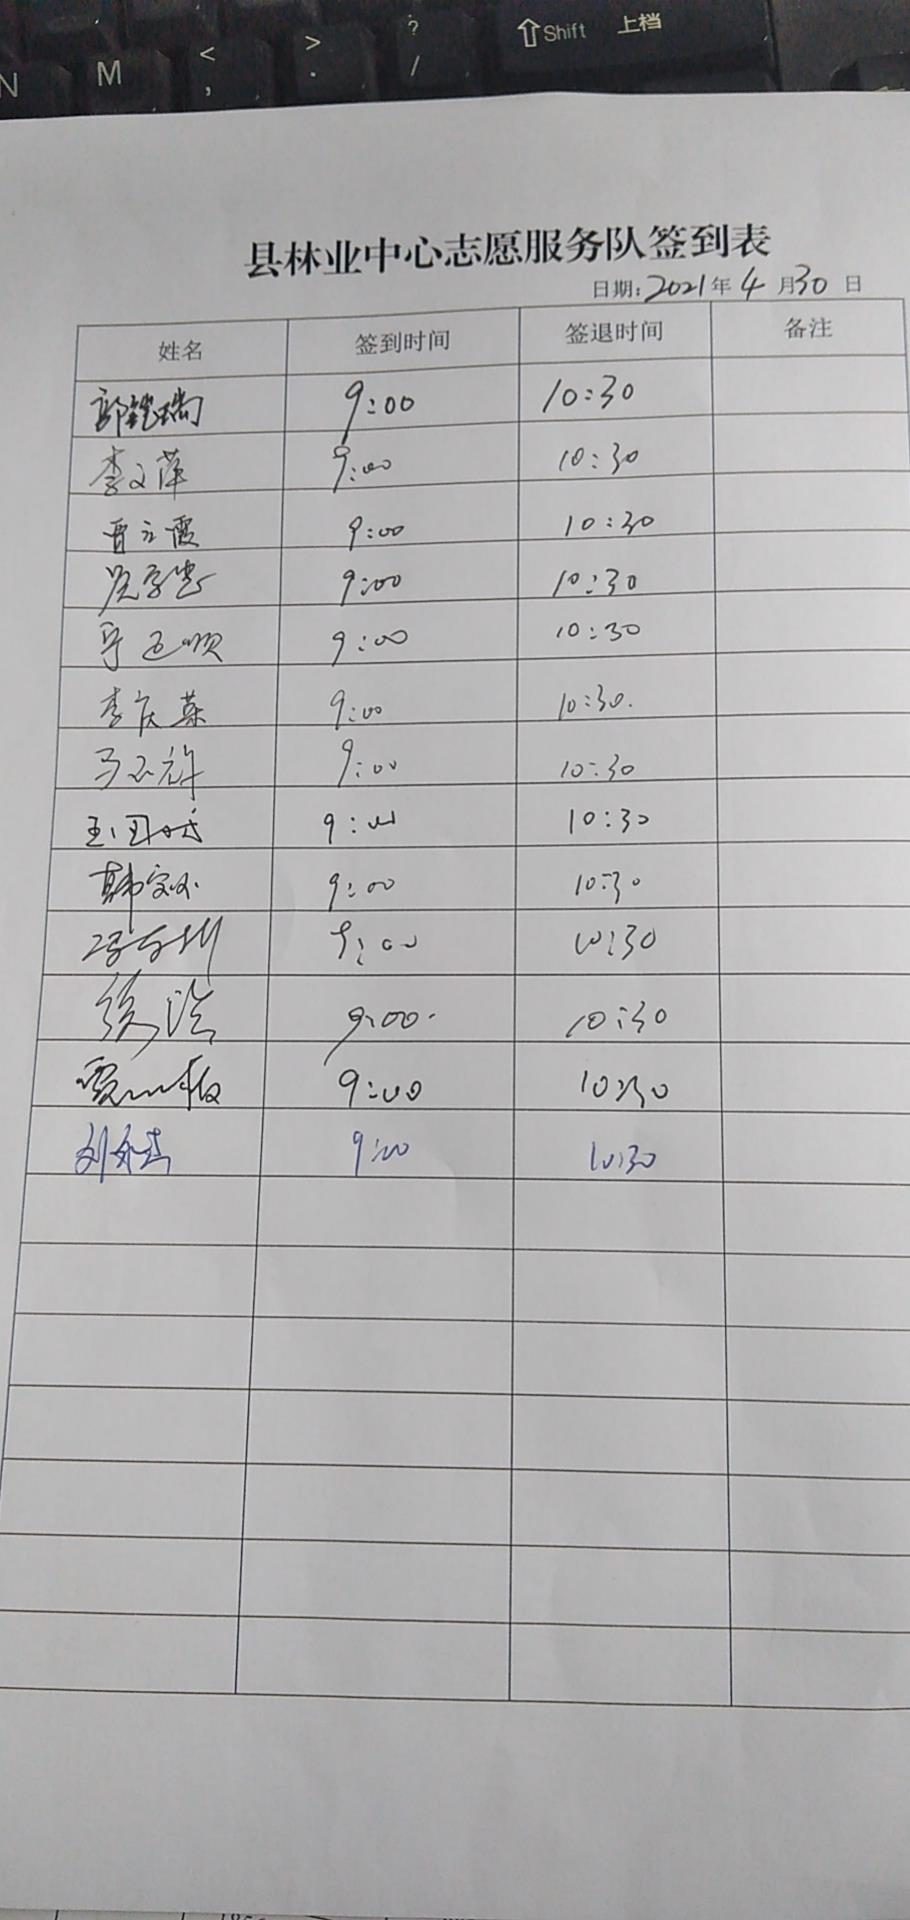 N M < , > . ? / ⇧Shift 上档
县林业中心志愿服务队签到表
日期：2021年4月30日
姓名 签到时间 签退时间 备注
郭铠瑞 9:00 10:30
李文萍 9:00 10:30
曹立霞 9:00 10:30
9:00 10:30
9:00 10:30
李庆英 9:00 10:30.
马 9:00 10:30
9:00 10:30
韩 9:00 10:30
冯 9:00 10:30
徐浩 9:00. 10:30
贾 9:00 10:30
刘 9:00 10:30